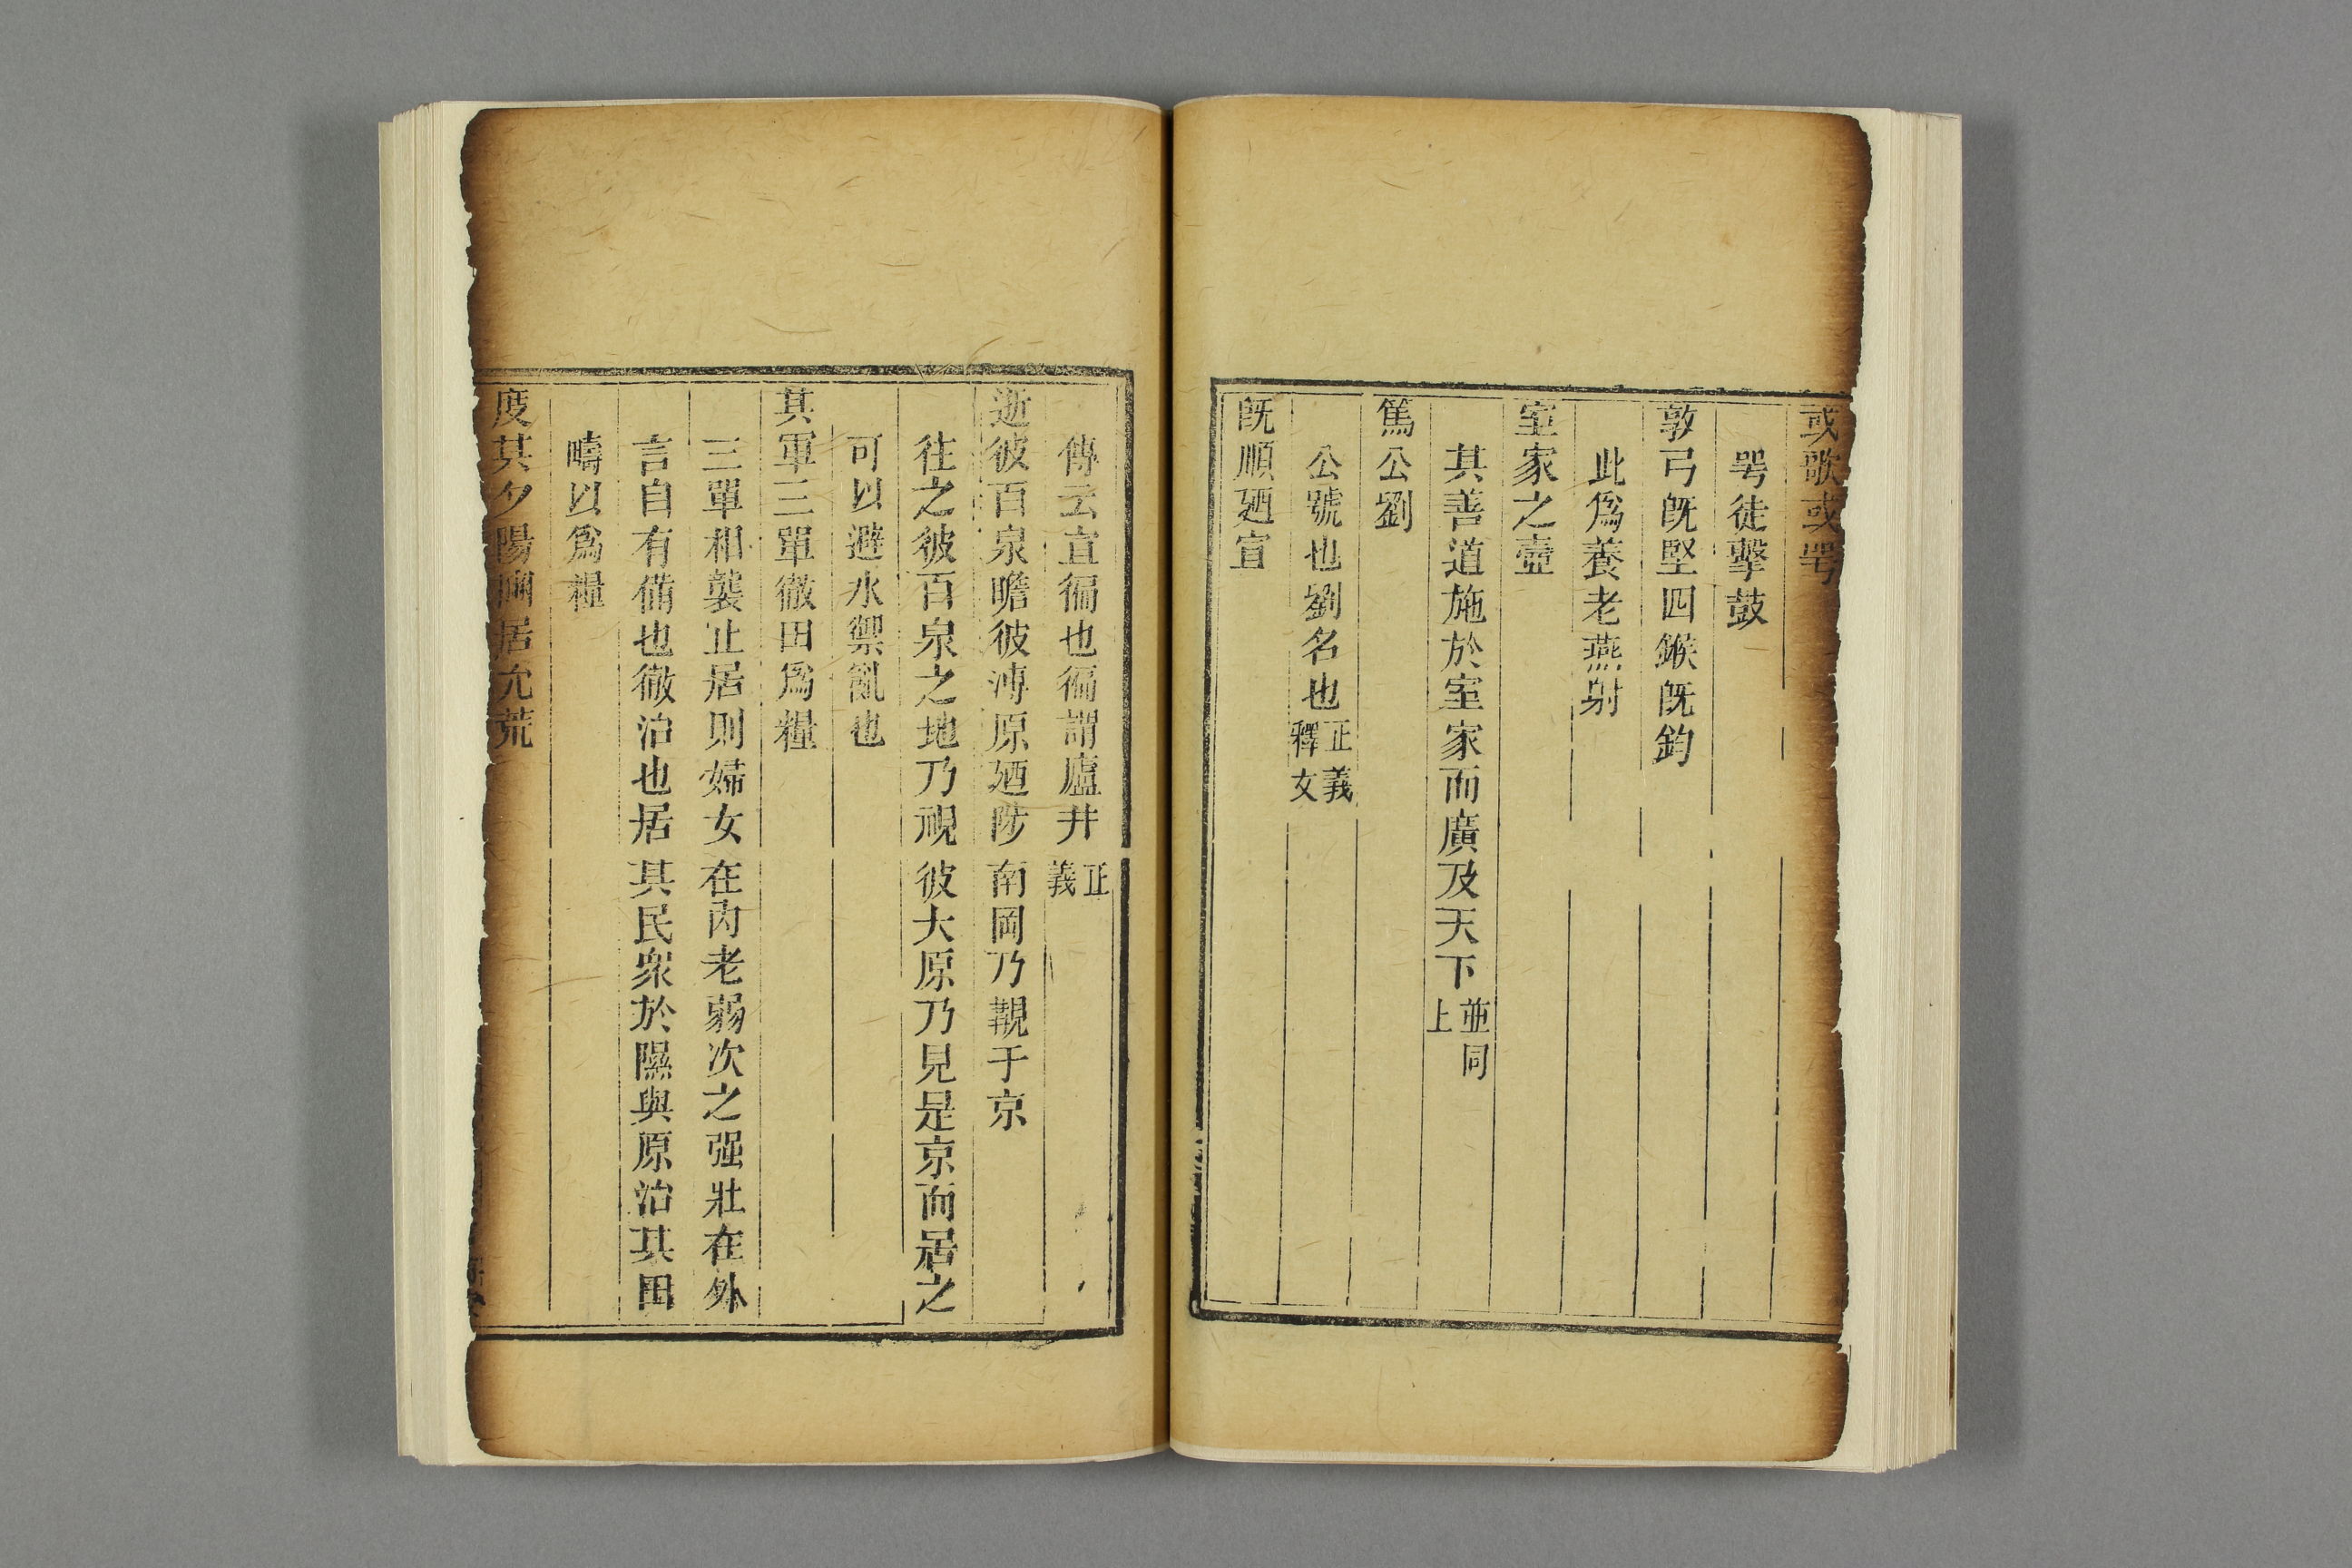 或歌或咢
咢徒擊鼓
敦弓旣堅四鍭旣鈞
此爲養老燕射
室家之壼
其善道施於室家而廣及天下並同上
篤公劉
公號也劉名也正義釋文
旣順廼宣
傳云宣徧也徧謂廬井正義
逝彼百泉瞻彼溥原廼陟南岡乃覯于京
往之彼百泉之地乃視彼大原乃見是京而居之
可以避水禦亂也
其軍三單徹田爲糧
三單相襲止居則婦女在內老弱次之强壯在外
言自有備也徹治也居其民衆於隰與原治其田
疇以爲糧
度其夕陽豳居允荒